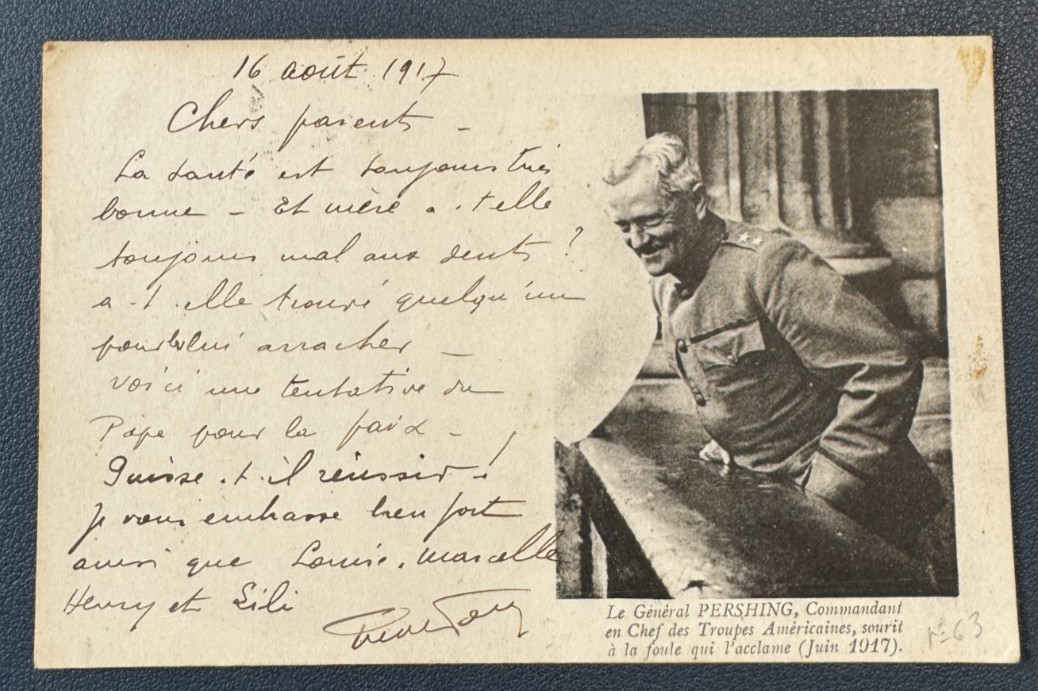 16 août 1917
Chers parents -
La santé est toujours très
bonne - Et mère a-t elle
toujours mal aux dents ?
a-t-elle trouvé quelqu'un
pour lui arracher -
Voici une tentative du
Pape pour la paix -
Puisse-t-il réussir !
je vous embrasse bien fort
ainsi que Louise, Marcelle
Henry et Lili
Le Général PERSHING, Commandant
en Chef des Troupes Américaines, sourit
à la foule qui l'acclame (Juin 1917).